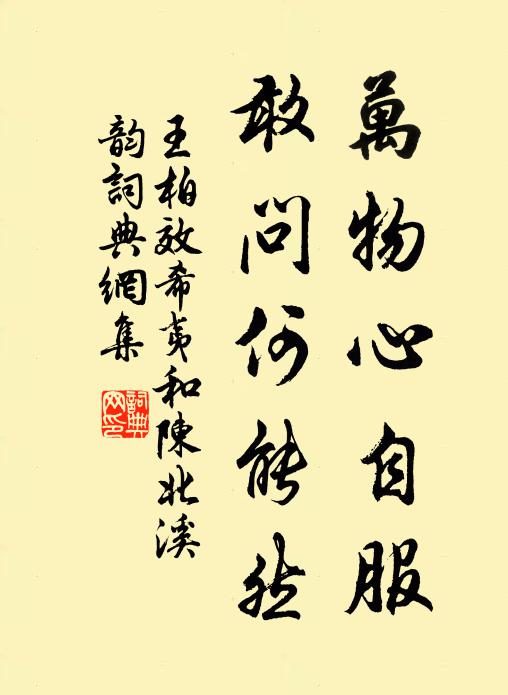 萬物心自服
敢問何能然
王柏效希夷和陳北溪
韵詞典網集
詞典網印